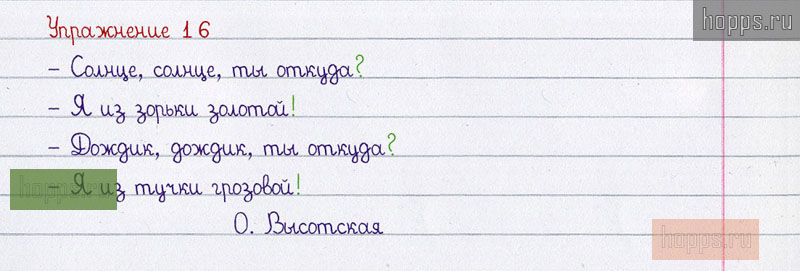 hopps.ru
Упражнение 16
– Солнце, солнце, ты откуда?
– Я из зорьки золотой!
– Дождик, дождик, ты откуда?
– Я из тучки грозовой!
hopps.ru
О. Высотская
hopps.ru